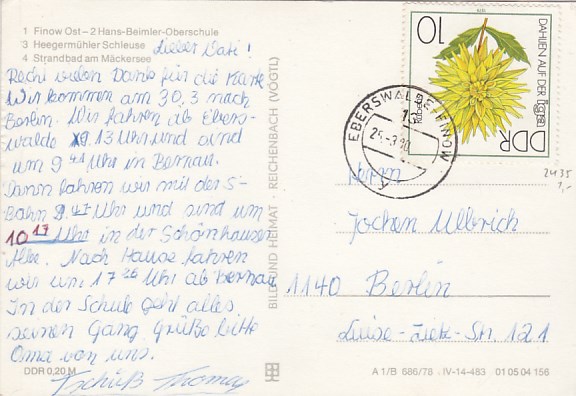 1 Finow Ost – 2 Hans-Beimler-Oberschule
3 Heegermühler Schleuse
4 Strandbad am Mäckersee
Lieber Vati!
Recht vielen Dank für die Karte
Wir kommen am 30.3 nach
Berlin. Wir fahren ab Ebers-
walde 9.13 Uhr und sind
um 9 41 Uhr in Bernau.
Dann fahren wir mit der S-
Bahn 9.47 Uhr und sind um
10 17 Uhr in der Schönhauser
Alle. Nach Hause fahren
wir um 17 26 Uhr ab Bernau
In der Schule geht alles
seinen Gang Grüße bitte
Oma von uns.
Tschüß Thomas
DDR 0,20 M
BILD UND HEIMAT · REICHENBACH (VOGTL)
10
DAHLIEN AUF DER
DDR
EBERSWALDE-FINOW
25.-3.80
2435
1,-
Herrn
Jochen Ullbrich
1140 Berlin
Luise-Zietz-Str. 121
A 1/B 686/78 IV-14-483 01 05 04 156